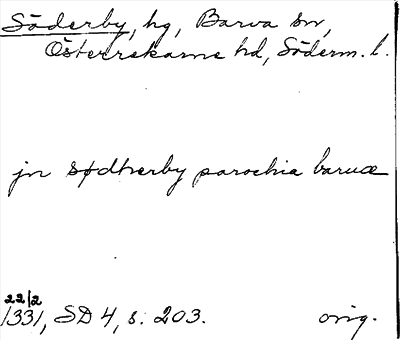 Söderby, hg, Barva sn,
Österrekarne hd, Söderm. l.
jn sødherby parochia baruæ
22/2
1331, SD 4, s. 203. orig.